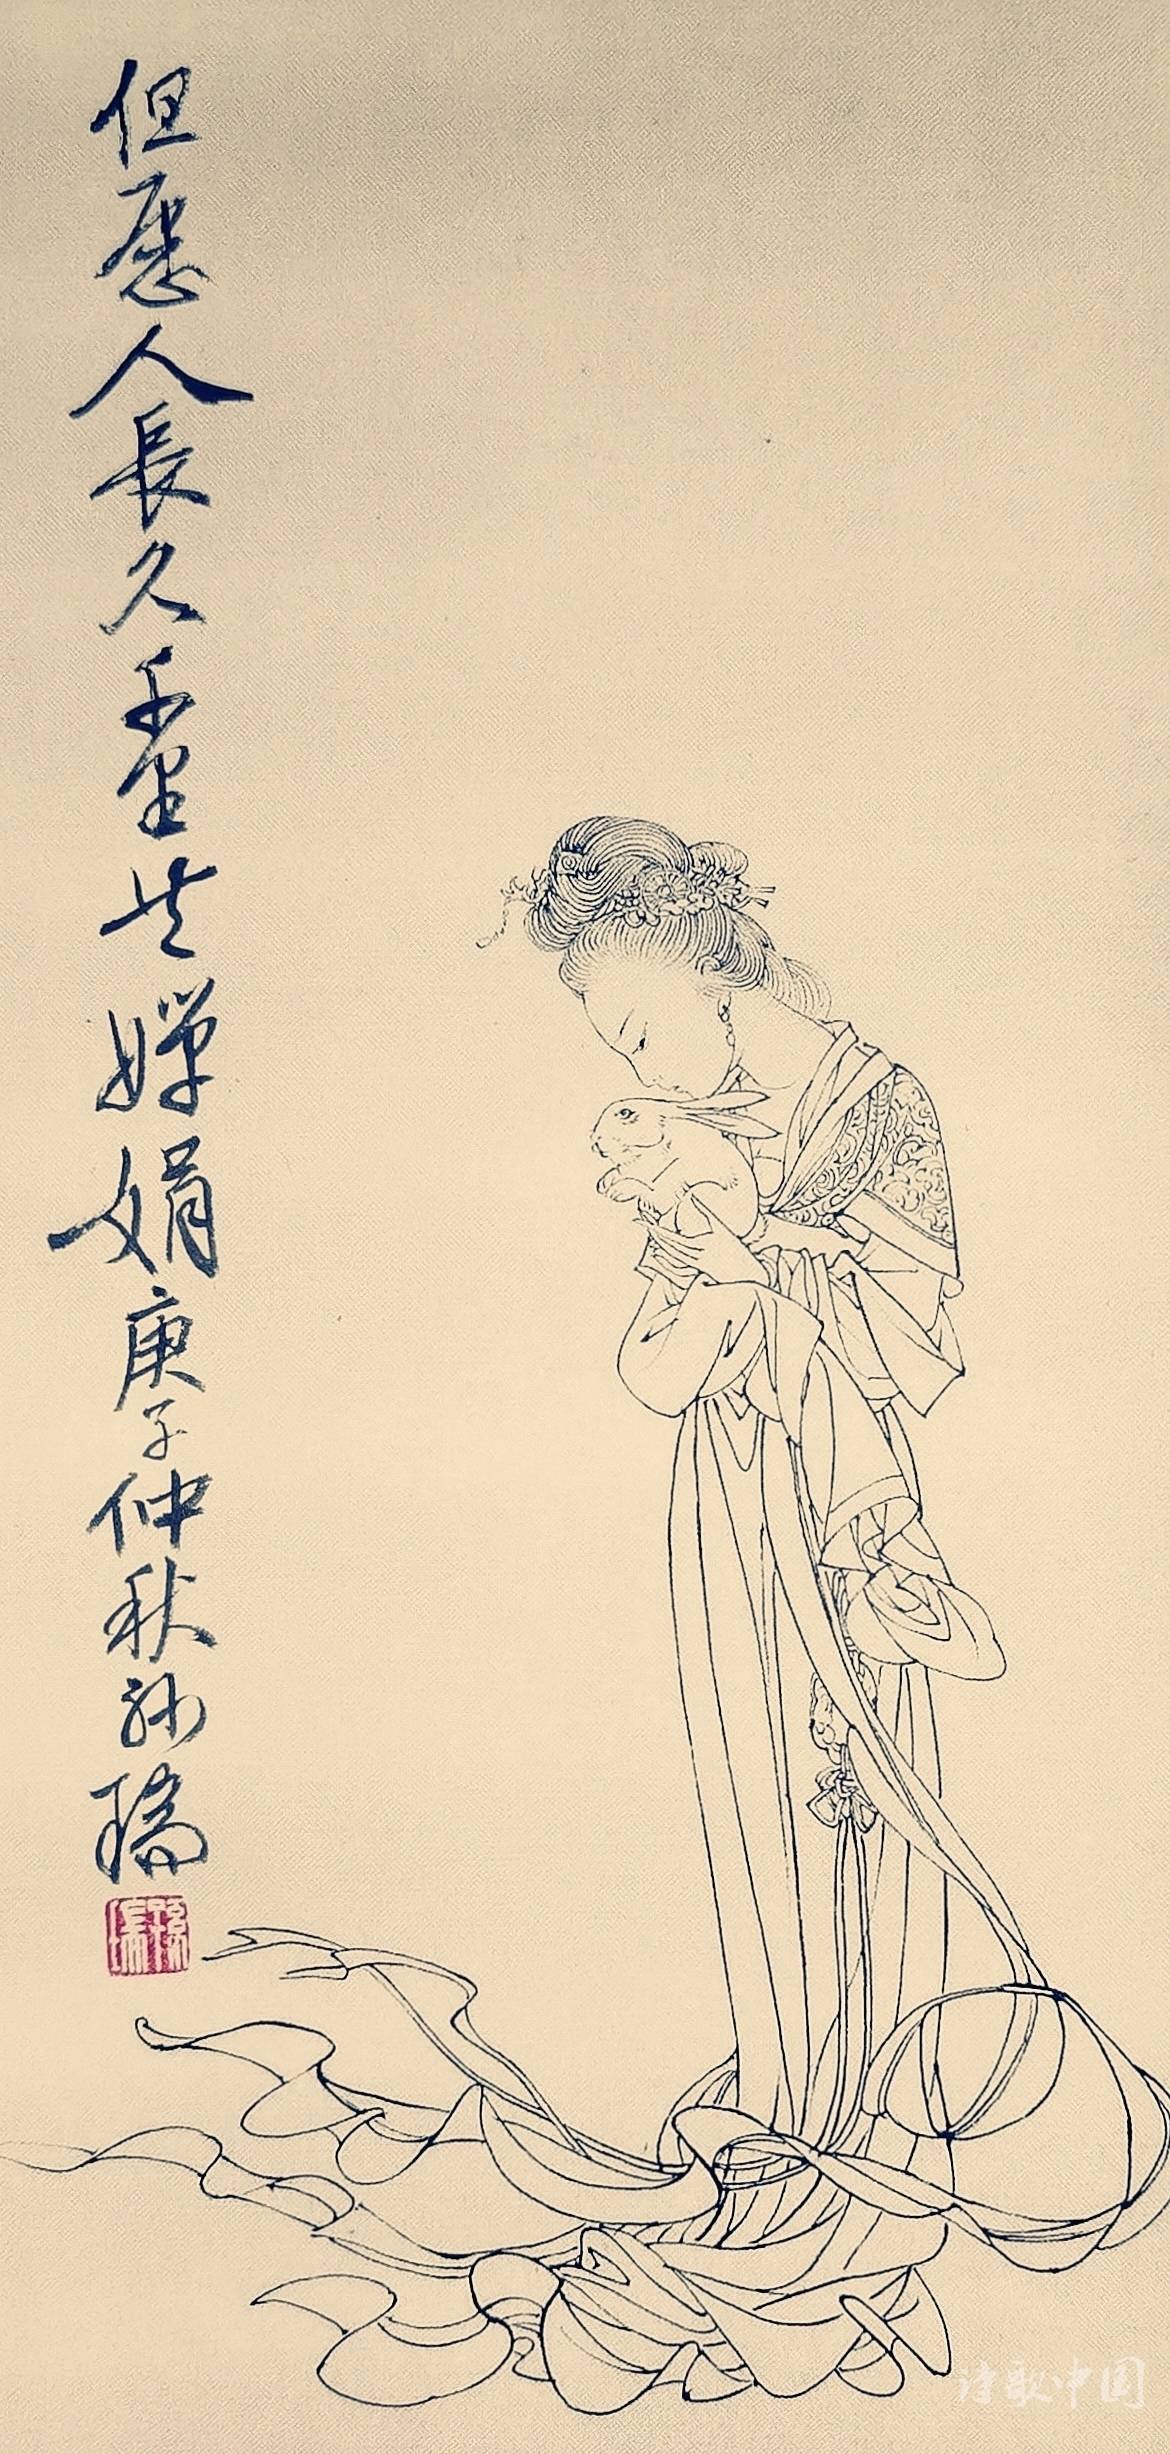 但愿人長久千里共婵娟庚子仲秋孙瑞
诗歌中国